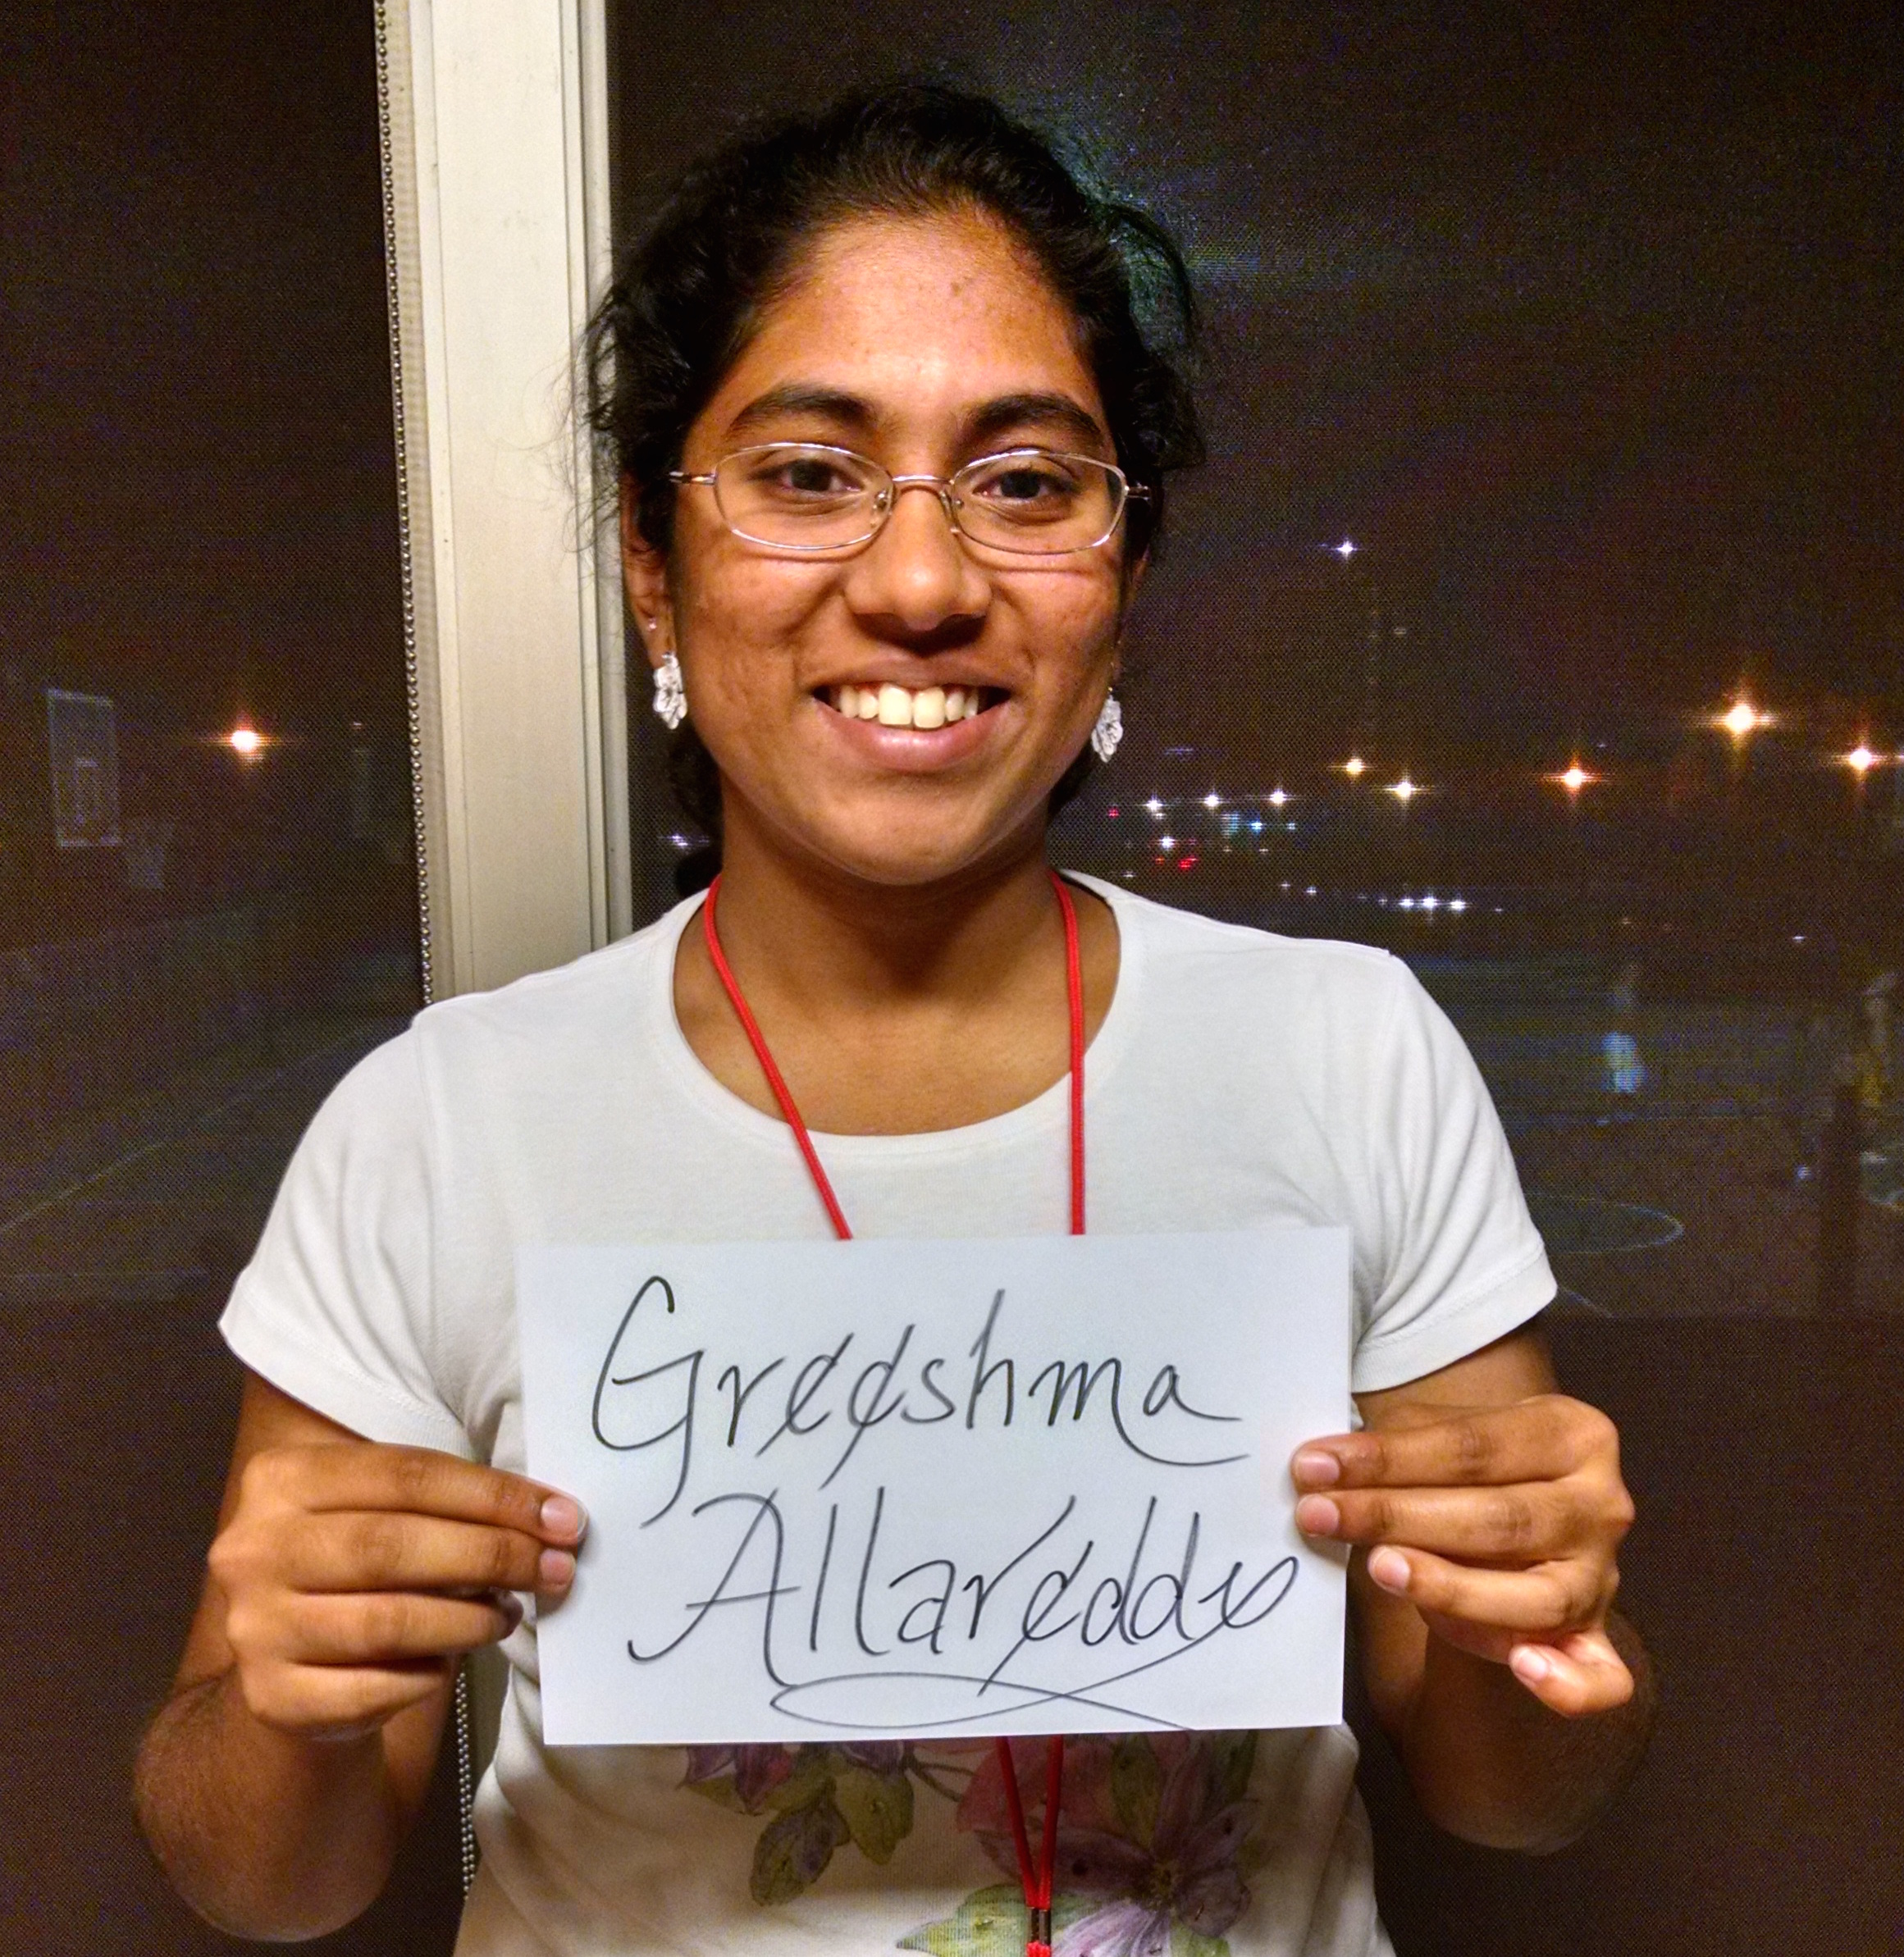 Greeshma
Allareddy